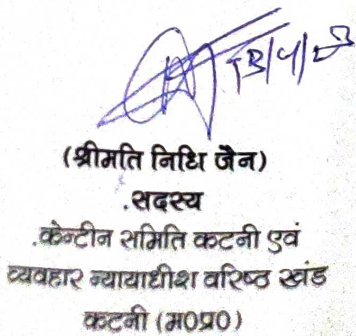 13/4/23
(श्रीमति निधि जैन)
.सदस्य
.केन्टीन समिति कटनी एवं
व्यवहार न्यायाधीश वरिष्ठ खंड
कटनी (म0प्र0)